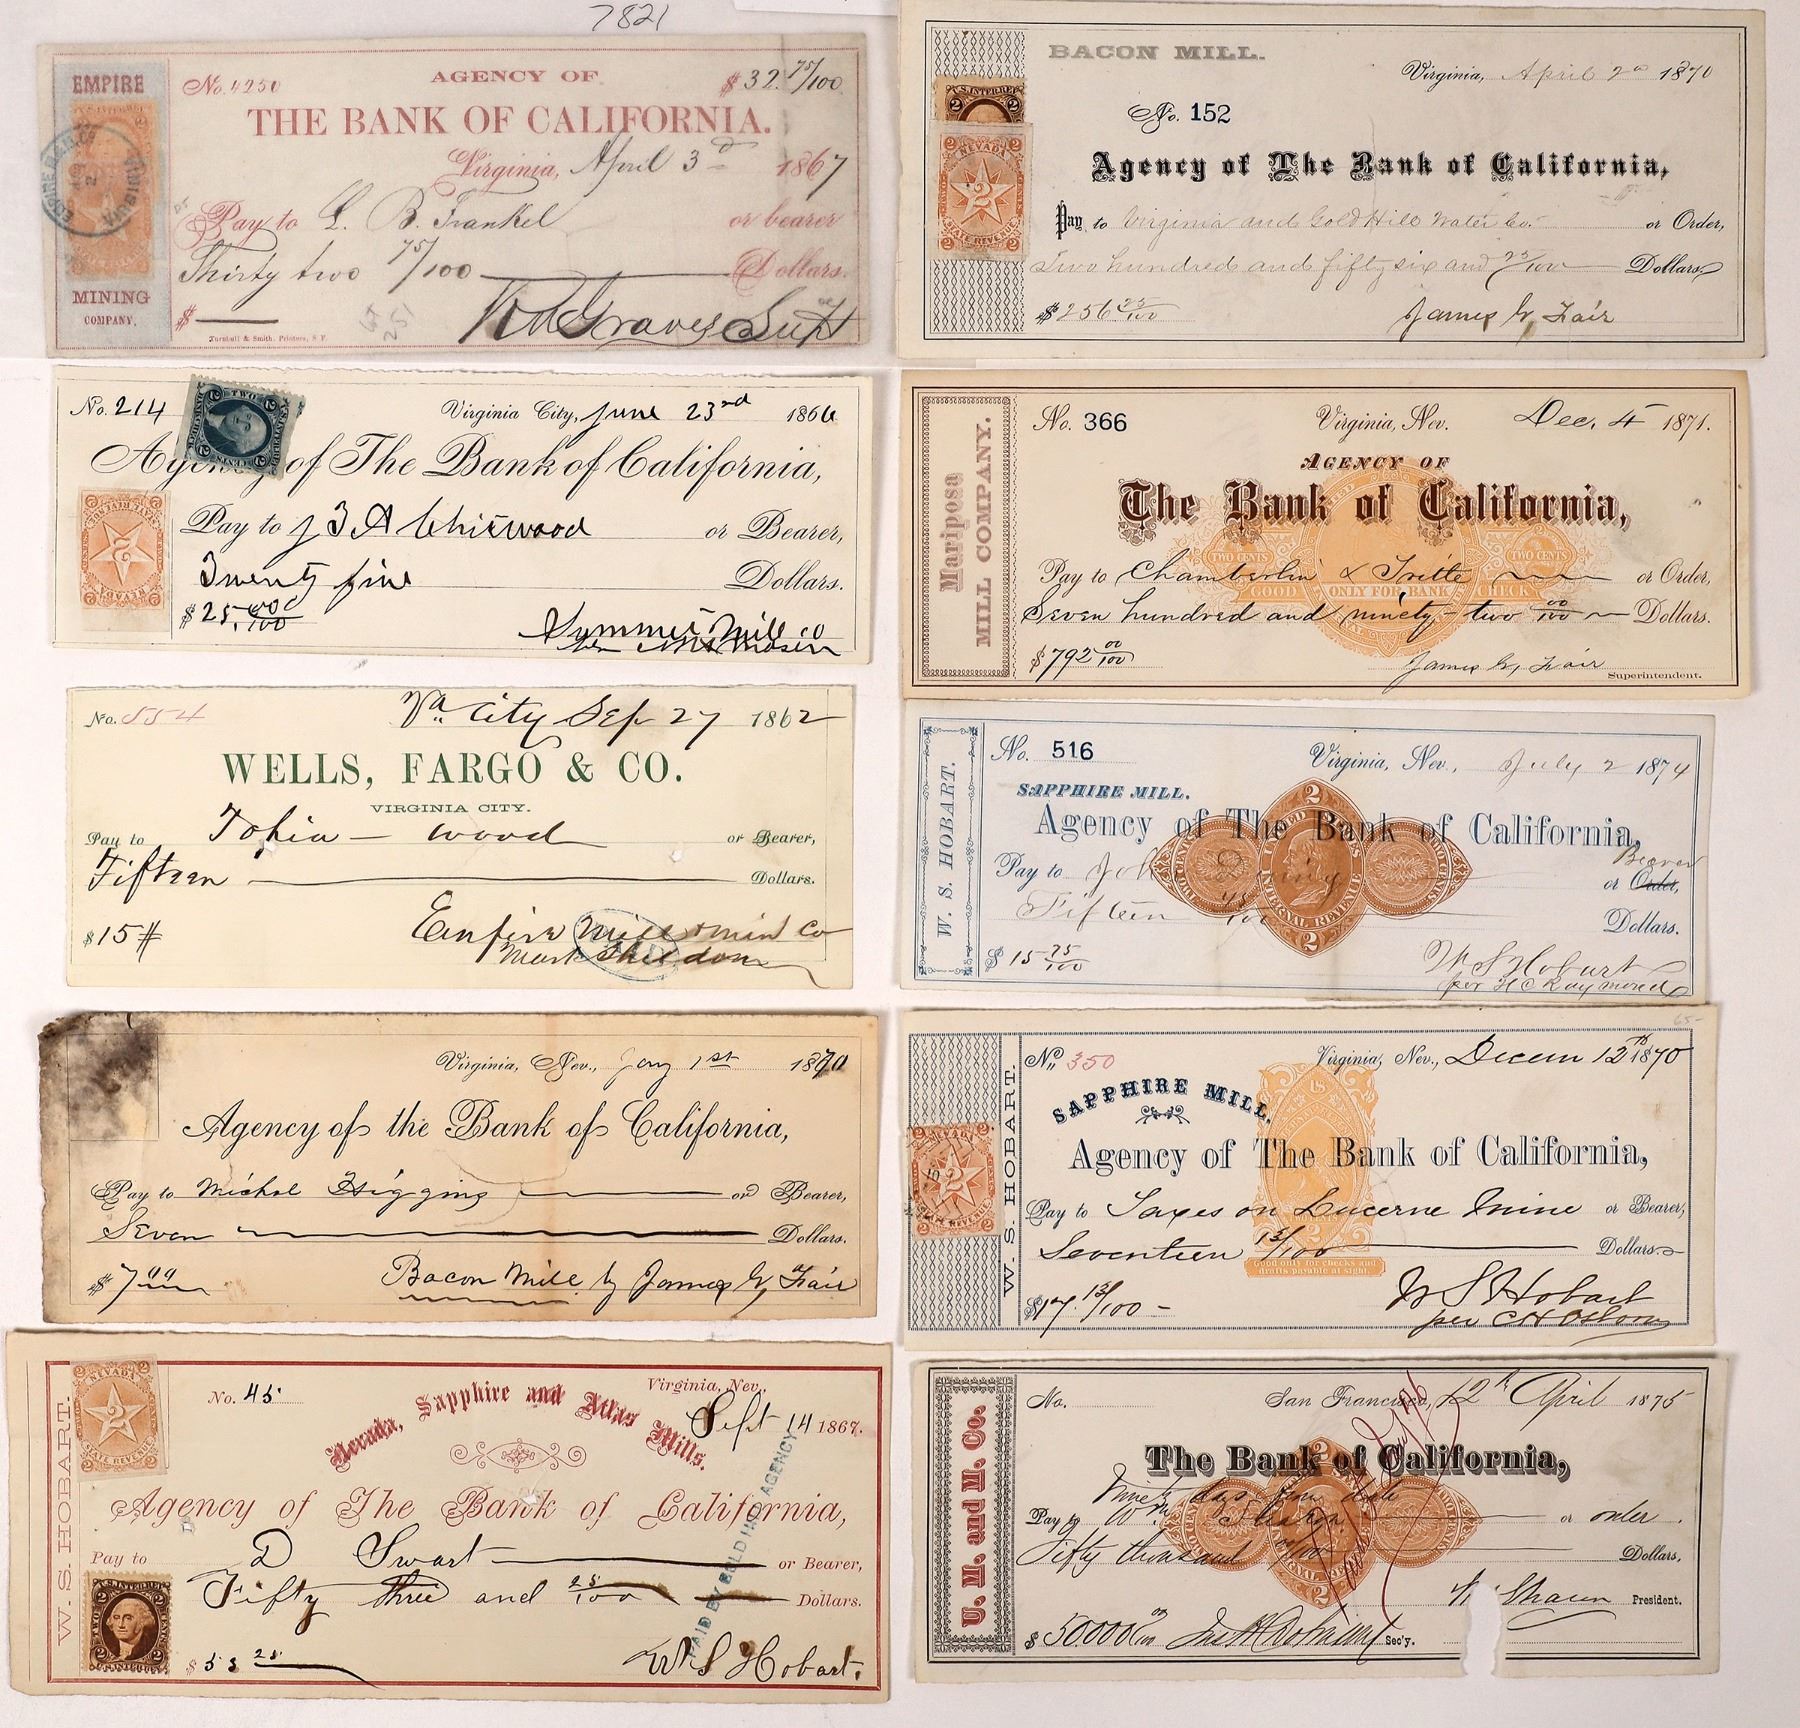 7821
EMPIRE
No. 4250
AGENCY OF
$32. 75/100
THE BANK OF CALIFORNIA.
Virginia, April 3d 1867
Pay to L. B. Frankel or bearer
Thirty two 75/100 Dollars.
MINING
COMPANY.
$
Turnbull & Smith. Printers, S F.
Graves Supt
No. 214
Virginia City, June 23rd 1866
Agency of The Bank of California,
Pay to J B A Chitwood or Bearer,
Twenty five Dollars.
$25.00/100
Summit Mill Co
No. 554
Va. City Sep 27 1862
WELLS, FARGO & CO.
VIRGINIA CITY.
Pay to Tohia - wood or Bearer,
Fifteen Dollars.
$15#
Empire Mill & Min Co
Mark Sheldon
Virginia, Nev., Jany 1st 1870
Agency of the Bank of California,
Pay to Michal Higgins or Bearer,
Seven Dollars.
$7.00
Bacon Mill by James G. Fair
W. S. HOBART.
NEVADA
2
STATE REVENUE
No. 45
Virginia, Nev.,
Sept 14 1867.
Nevada, Sapphire and Atlas Mills.
Agency of The Bank of California,
Pay to D Swart or Bearer,
Fifty three and 25/100 Dollars.
PAID BY GOLD HILL AGENCY
$53 25
W S Hobart.
BACON MILL.
Virginia, April 2d 1870
No. 152
U.S. INTER REV
NEVADA
2
STATE REVENUE
Agency of The Bank of California,
Pay to Virginia and Gold Hill Water Co. or Order,
Two hundred and fifty six and 25/100 Dollars
$256 25/100
James G. Fair
Mariposa
MILL COMPANY.
No. 366
Virginia, Nev. Dec. 4 1871.
AGENCY OF
The Bank of California,
TWO CENTS
TWO CENTS
Pay to Chamberlin & Tritte or Order,
GOOD ONLY FOR BANK CHECK
Seven hundred and ninety-two 00/100 Dollars.
$792 00/100
James G. Fair
Superintendent.
W. S. HOBART.
No. 516
Virginia, Nev., July 2 1874
SAPPHIRE MILL.
Agency of The Bank of California,
Pay to
Bearer
or Order,
Fifteen 75/100 Dollars.
UNITED STATES
INTERNAL REVENUE
2
2
$15 75/100
W S Hobart
per H C Raymond
65-
W. S. HOBART.
No. 350
Virginia, Nev., Decem 12th 1870
SAPPHIRE MILL,
Agency of The Bank of California,
Pay to Taxes on Lucerne Mine or Bearer,
Seventeen 13/100 Dollars
Good only for checks and
drafts payable at sight.
$17.13/100 -
W S Hobart
per C H Osborn
U. M. and M. Co.
No.
San Francisco, 12th April 1875
The Bank of California,
Ninety days from date
Pay to Wm Sharon or order.
Fifty thousand 00/100 Dollars,
Sharon President.
$50000 00/100
Sec'y.